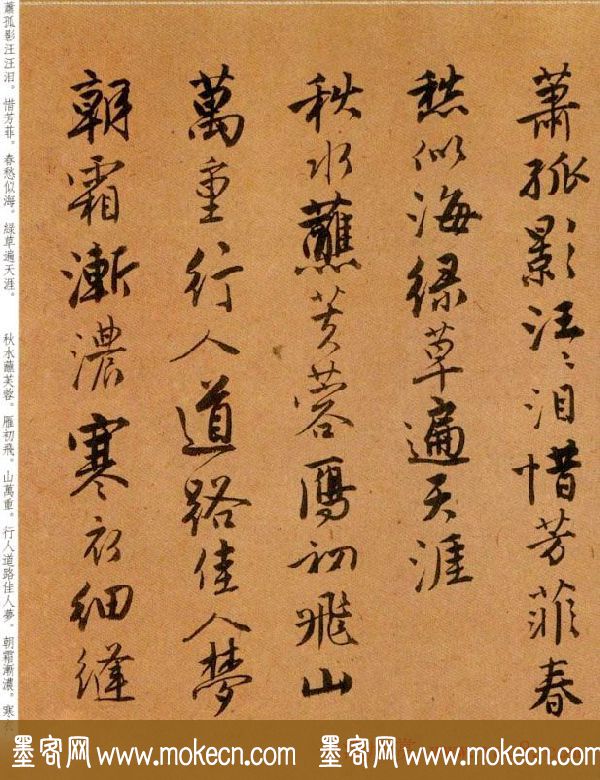 蕭孤影汪汪泪惜芳菲春
愁似海緑草遍天涯
秋水蘸芙蓉鴈初飛山
萬重行人道路佳人夢
朝霜漸濃寒衣細縫
蕭孤影汪汪泪。惜芳菲。春愁似海。緑草遍天涯。 秋水蘸芙蓉。雁初飛。山萬重。行人道路佳人夢。朝霜漸濃。寒衣
墨客网 www.mokecn.com 墨客网 www.mokecn.com